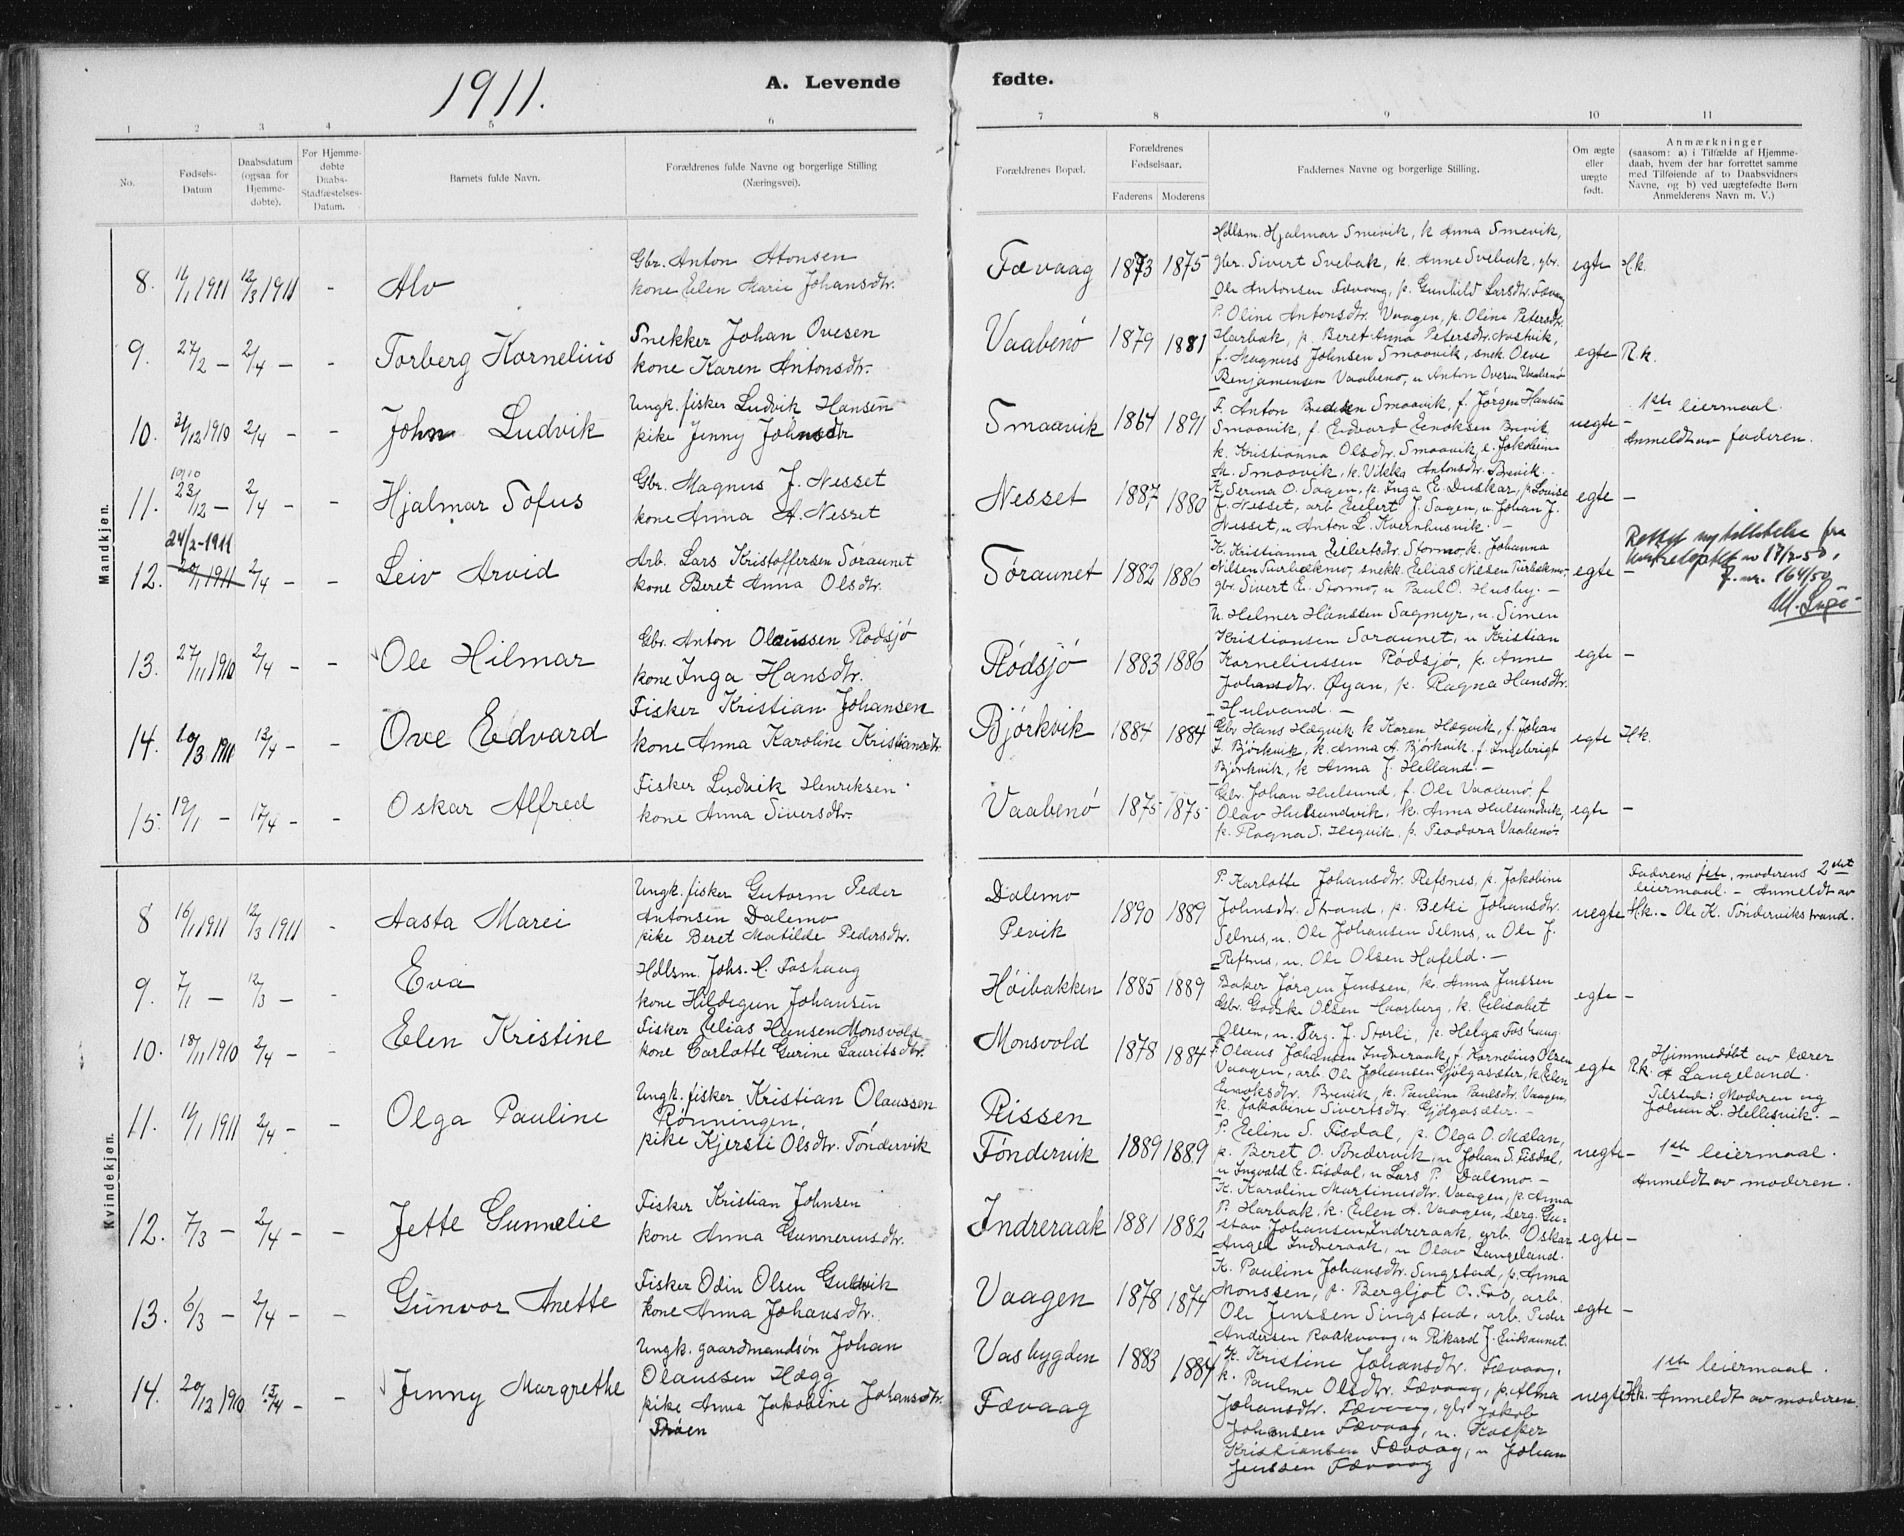 1911.
A. Levende fødte.
1 2 3 4 5 6 7 8 9 10 11
No.
Fødsels-
Datum
Daabsdatum
(ogsaa for
Hjemme-
døbte).
For Hjemme-
døbte
Daabs-
Stadfæstelses-
Datum.
Barnets fulde Navn.
Forældrenes fulde Navne og borgerlige Stilling
(Næringsvei).
Forældrenes Bopæl.
Forældrenes
Fødselsaar.
Faderens Moderens
Faddernes Navne og borgerlige Stilling.
Om ægte
eller
uægte
født.
Anmærkninger
(saasom: a) i Tilfælde af Hjemme-
daab, hvem der har forrettet samme
med Tilføiende af to Daabsvidners
Navne, og b) ved uægtefødte Børn
Anmelderens Navn m. V.)
Mandkjøn.
8. 11/1 1911 12/3 1911 - Alv
Gbr. Anton Atonsen
kone Elen Marie Johansdtr.
Fævaag 1873 1875
Hdlsm. Hjalmar Smevik, k Anna Smevik,
gbr. Sivert Svebak, k. Anne Svebak, gbr.
Ole Antonsen Fævaag, p. Gunhild Larsdtr. Fævaag
egte H.k.
9. 27/2 - 2/4 - - Torberg Kornelius
Snekker Johan Ovesen
kone Karen Antonsdtr.
Vaabenø 1879 1881
P. Oline Antonsdtr. Vaagen, p. Olina Petersdtr.
Harbak, p. Beret Anna Petersdtr. Nostvik,
f. Magnus Johnsen Smaavik, snek. Ove
Benjaminsen Vaabenø, u Anton Ovesen Vaabenø
egte R.k.
10. 31/12 1910 2/4 - - John Ludvik
Ungk. fisker Ludvik Hansen
pike Jenny Johnsdtr
Smaavik 1864 1891
F. Anton Smaavik, f. Jørgen Hansen
Smaavik, f. Edvard Enoksen Brevik
k. Kristianna Olsdtr. Smaavik, e. Jakobine
M. Smaavik, k. Vikka Antonsdtr. Brevik. -
uegte -
1ste leiermaal.
Anmeldt av faderen.
11. 1910 23/12 - 2/4 - - Hjalmar Sofus
Gbr. Magnus J. Nesset
kone Anna A. Nesset
Nesset 1887 1880
K. Serina O. Sagen, p. Inga E. Duskar, p Lovise
J. Nesset, arb Eilert J. Sagen, u Johan J.
Nesset, u Anton L. Kvernhusvik. -
egte -
24/2-1911
12. 20/1 1911 2/4 - - Leiv Arvid
Arb. Lars Kristoffersen Søraunet
kone Beret Anna Olsdtr.
Søraunet 1882 1886
K. Kristianna Eilertsdtr. Stormo, k. Johanna
Nilsen Furbækmo, snekk. Elias Nilsen Furbækmo,
gbr. Sivert E. Stormo, u Paul O. Husby. -
egte -
Rettet
av 17/2-50,
J. nr. 164/50
13. 27/11 1910 2/4 - - Ole Hilmar
Gbr. Anton Olaussen Rødsjø
kone Inga Hansdtr.
Rødsjø 1883 1886
U. Helmer Hanssen Sagmyr, u. Simen
Kristiansen Søraunet, u Kristian
Korneliussen Rødsjø, p. Anne
Johansdtr. Øyan, p. Ragna Hansdtr.
Hulvand. -
egte -
14. 10/3 1911 13/4 - - Ove Edvard
Fisker Kristian Johansen
kone Anna Karoline Kristiansdtr
Bjørkvik 1884 1884
Gbr Hans Hægvik, k Karen Hægvik, f. Johan
J. Bjørkvik, k. Anna A. Bjørkvik. f. Ingebrigt
Bjørkvik, k Anna J. Helland. -
egte H.k.
15. 19/1 - 17/4 - - Oskar Alfred
Fisker Ludvik Henriksen
kone Anna Siversdtr.
Vaabenø 1875 1875
Gbr. Johan Hulsund, f. Ole Vaabenø, f
Olav Hulsundvik, k. Anna Hulsundvik,
p. Ragna S. Hegvik, p. Teodora Vaabenø.
egte -
Kvindekjøn.
8 15/1 1911 12/3 1911 - Aasta Marei
Ungk. fisker Gutorm Peder
Antonsen Dalemo
pike Beret Matilde Pedersdtr.
Dalemo
Pevik
1890 1889
P. Karlotte Johansdtr. Refsnes, p. Jakobine
Johnsdtr. Strand, p. Betsi Johansdtr.
Selnes, u. Ole Johansen Selnes, u Ole J.
Refsnes, u. Ole Olsen Hofeld. -
uegte
Faderens 1ste, moderens 2det
leiermaal. - Anmeldt av
H.k. - Ole K. Tøndervikstrand.
9. 7/1 - 12/3 - - Eva
Hdlsm. Johs. H. Foshaug
kone Hildegun Johansen
Høibakken 1885 1889
Baker Jørgen Jenssen, k. Anna Jenssen
Gbr. Godske Olsen Haarberg, k. Elisabet
Olsen, u. Serg. J. Storli, p. Helga Foshaug.
egte -
10. 18/11 1910 2/4 - - Elen Kristine
Fisker Elias Hansen Monsvold
kone Carlotte Gurine Lauritsdtr.
Monsvold 1878 1884
F. Olaus Johansen Indreraak, f Kornelius Olsen
Vaagen, arb. Ole Johansen Gjølgasæter, k Elen
Enoksdtr. Brevik, k. Pauline Paulsdtr. Vaagen,
k. Jakobine Sivertsdtr. Gjølgasæter. -
egte R.k.
Hjemmedøbt av lærer
A Langeland.
Tilstede: Moderen og
Johan L. Hellesvik. -
11. 11/1 1911 2/4 - - Olga Pauline
Ungk. fisker Kristian Olaussen
Rønningen,
pike Kjersti Olsdtr. Tøndervik
Rissen
Tøndervik 1889 1889
P. Eline S. Fisdal, p. Olga O. Mælan,
p. Beret O. Tøndervik, u Johan S. Fisdal,
u Ingvald E. Fisdal, u Lars P. Dalemo -
uegte -
1ste leiermaal.
Anmeldt av moderen.
12. 7/3 - 2/4 - - Jette Gunnelie
Fisker Kristian Johnsen
kone Anna Gunneriusdtr.
Indreraak 1881 1882
K. Karoline Martinusdtr. Vaagen, p. Anna
P. Harbak, k. Elen A. Vaagen, serg. Gu-
stav Johansen Indreraak, arb. Oskar
Angel Indreraak, u Olav Langeland.
egte -
13. 6/3 - 2/4 - - Gunvor Anette
Fisker Odin Olsen Guldvik
kone Anna Johansdtr.
Vaagen 1878 1874
K. Pauline Johansdtr. Singstad, p. Anna
Monssen, p. Bergljot O. Fos, arb.
Ole Jenssen Singstad, arb. Peder
Andersen Raakvaag, u Rikard J. Eriksaunet.
egte -
14. 20/12 1910 13/4 - - Jenny Margrethe
Ungk. gaardmandsøn Johan
Olaussen Hægg
pike Anna Jakobine Johansdtr.
Trøen
Vasbygden
Fævaag
1883 1884
K. Kristine Johansdtr. Fævaag,
k. Pauline Olsdtr. Fævaag, p. Alma
Johansdtr. Fævaag, gbr Jakob
Johansen Fævaag, u. Kasper
Kristiansen Fævaag, u Johan
Jenssen Fævaag
uegte H.k.
1ste leiermaal.
Anmeldt av moderen.